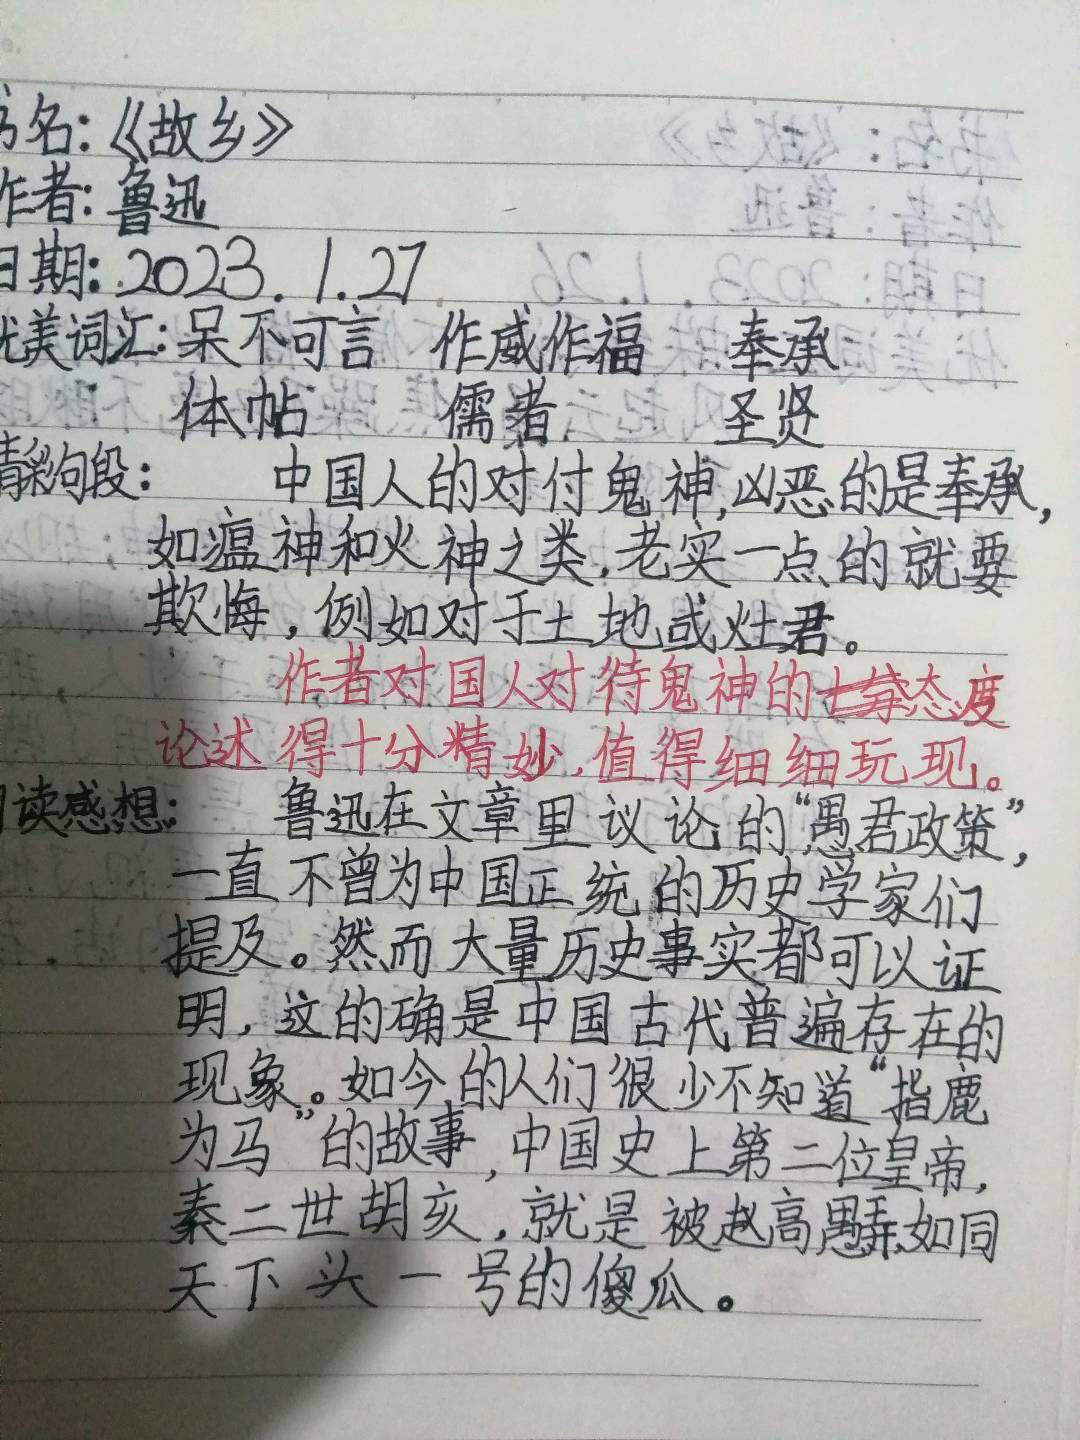 书名：《故乡》
作者：鲁迅
日期：2023.1.27
优美词汇：呆不可言 作威作福 奉承
体帖 儒者 圣贤
精彩句段： 中国人的对付鬼神，凶恶的是奉承，
如瘟神和火神之类，老实一点的就要
欺悔，例如对于土地或灶君。
作者对国人对待鬼神的态度
论述得十分精妙，值得细细玩现。
阅读感想： 鲁迅在文章里议论的“愚君政策”，
一直不曾为中国正统的历史学家们
提及。然而大量历史事实都可以证
明，这的确是中国古代普遍存在的
现象。如今的人们很少不知道“指鹿
为马”的故事，中国史上第二位皇帝，
秦二世胡亥，就是被赵高愚弄，如同
天下头一号的傻瓜。